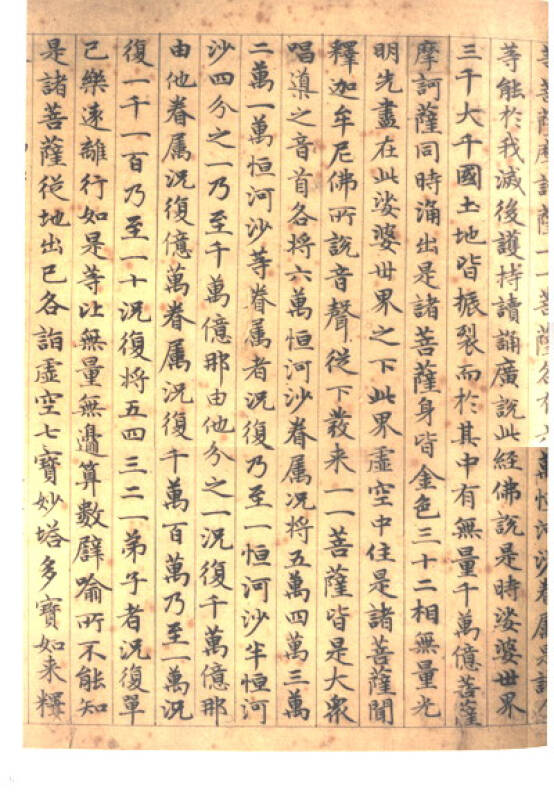 菩薩一一菩薩各有六萬恒河沙眷屬是諸
等能於我滅後護持讀誦廣說此經佛說是時娑婆世界
三千大千國土地皆振裂而於其中有無量千萬億菩薩
摩訶薩同時涌出是諸菩薩身皆金色三十二相無量光
明先盡在此娑婆世界之下此界虛空中住是諸菩薩聞
釋迦牟尼佛所說音聲從下發來一一菩薩皆是大眾
唱導之音首各將六萬恒河沙眷屬況將五萬四萬三萬
二萬一萬恒河沙等眷屬者況復乃至一恒河沙半恒河
沙四分之一乃至千萬億那由他分之一況復千萬億那
由他眷屬況復億萬眷屬況復千萬百萬乃至一萬況
復一千一百乃至一十況復將五四三二一弟子者況復單
己樂遠離行如是等比無量無邊算數譬喻所不能知
是諸菩薩從地出已各詣虛空七寶妙塔多寶如来釋